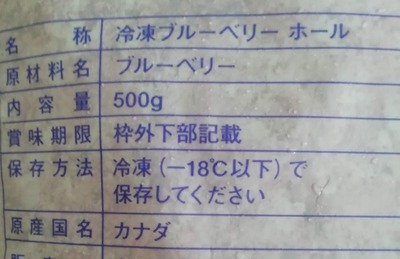 名 称 冷凍ブルーベリー ホール
原材料名 ブルーベリー
内容量 500g
賞味期限 枠外下部記載
保存方法 冷凍(-18℃以下)で
保存してください
原産国名 カナダ